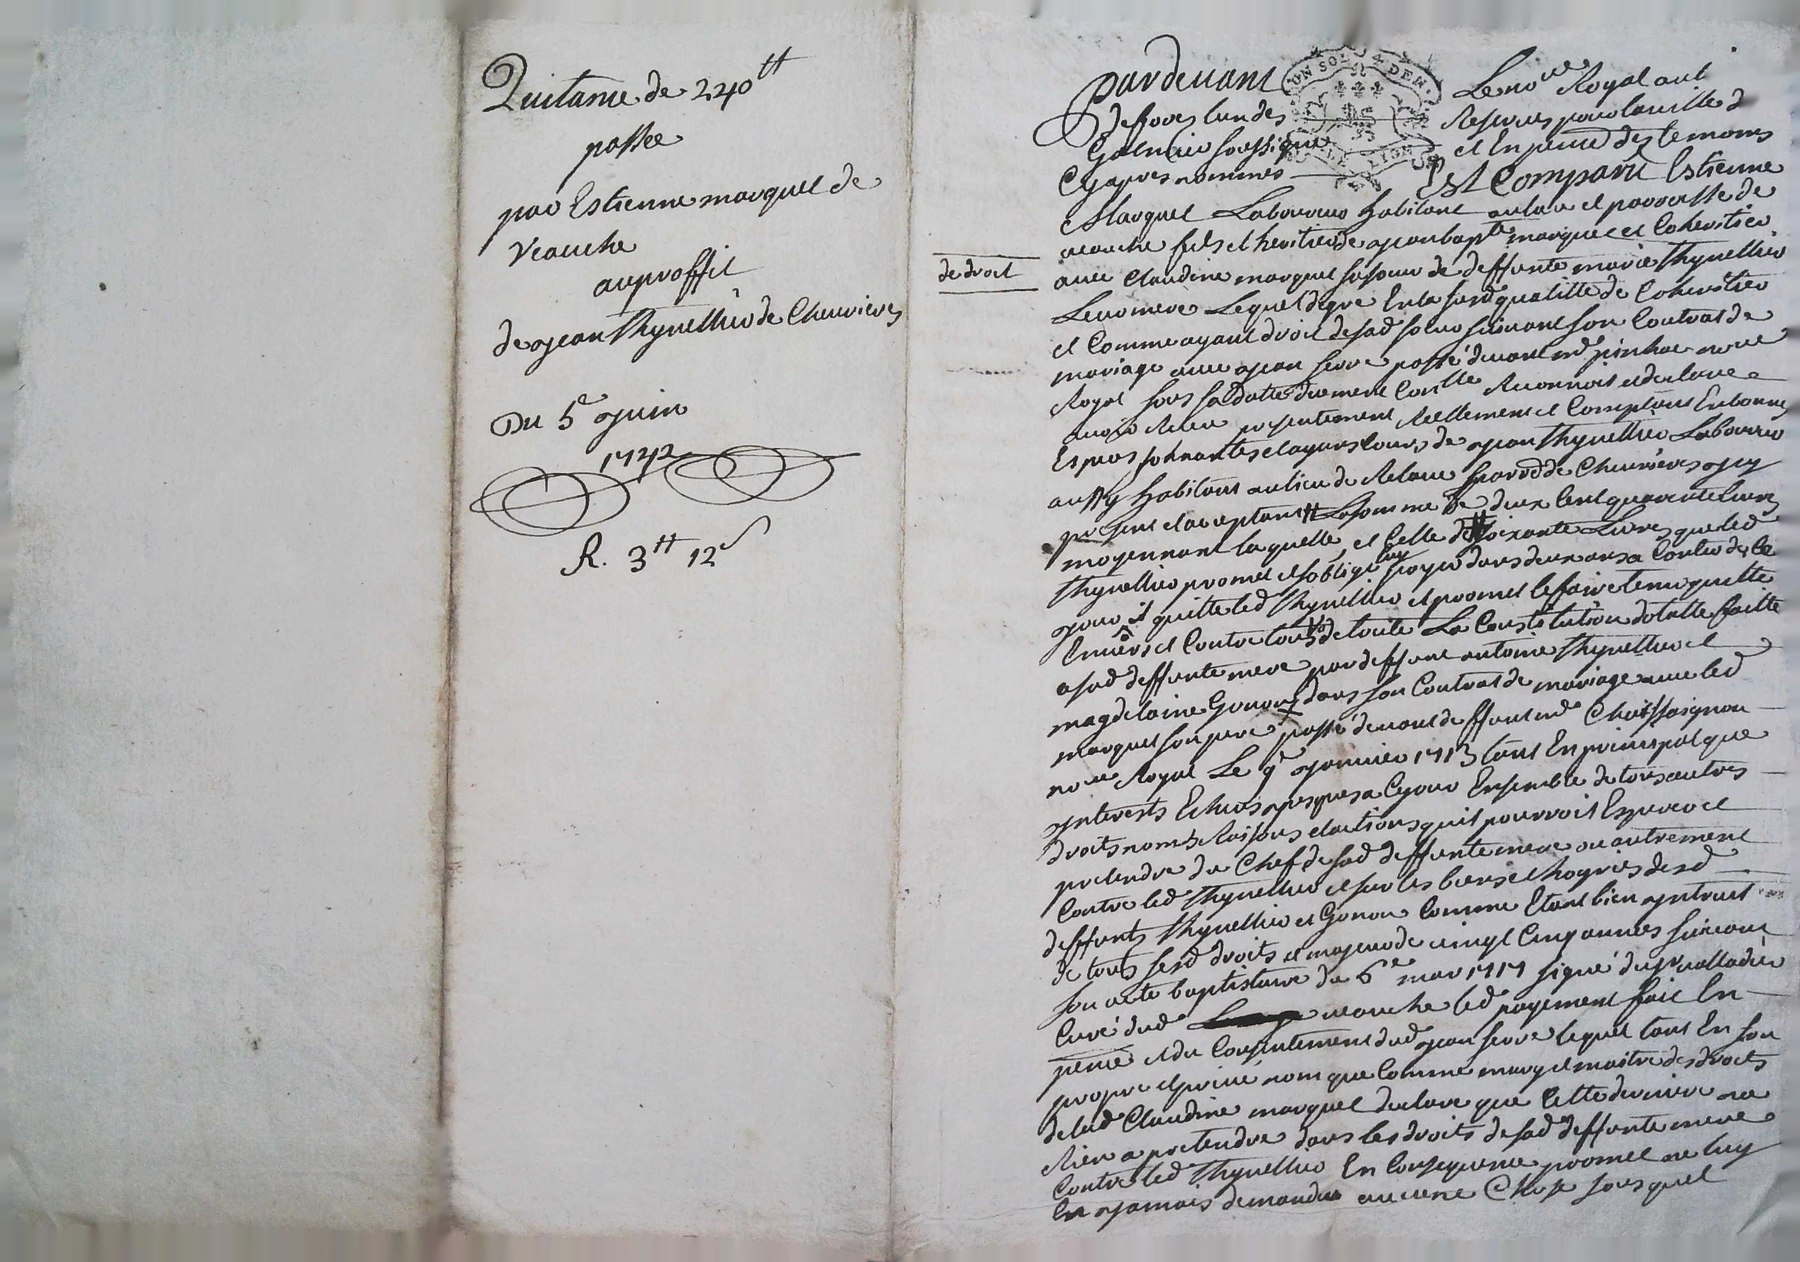 Quitance de 240 tt
passée
par Estienne marquet de
Veauche
au proffit
de jean thynellier de Chevrieres
Du 5e juin
1742
R. 3 tt 12 s
de droit
UN SOL 4 DEN.
LION
Pardevant Le nore Royal aux
de foves lundes Reserves pour la ville d
Galmier soussigné et En pnce des temoins
Cy apres nommés Est Comparu Estienne
Marquet Laboureur habitant au lieu et parroisse de
veauche fils et heritier de jean bapte marquet et Coheritier
avec Claudine marquet sa soeur de deffunte marie thynellier
Leur mere Lequel de gré En la susd qualitté de Coheritier
et Comme ayant droit de sad soeur suivant son Contrat de
mariage avec jean serve passé devant me pinhac nore
Royal sous sa datte duement Conllé Reconnoit et declare
avoir Receu presentement Reellement et Comptant En bonnes
Especes sonnantes et ayans cours de jean thynellier Laboureur
aussy habitant au lieu de parroisse de Chevrieres icy
present et acceptant La somme de deux Cent quarante livres
moyennant laquelle et Celle de soixante Livres que led
thynellier promet et s'oblige luy payer dans deux ans a Conter de Ce
jour il quitte led thynellier et promet le faire tenir quitte
Envers et Contre tous de toute La Constitution dotalle faitte
a sad deffunte mere par deffunt antoine thynellier et
magdelaine Gonon dans son Contrat de mariage avec led
marquet son pere passé devant deffunt me Chassaignon
nore Royal Le 9e janvier 1713 tant En principal que
interests Echus jusques a Ce jour Ensemble de tous autres
droits noms Raisons et actions qu'il pourroit Esperer et
pretendre du Chef de sad deffunte mere ou autrement
Contre led thynellier et sur les biens et hoyries desd
deffunts thynellier et Gonon Comme Etant bien instruit
de tous sesd droits et majeur de vingt Cinq années suivant
son acte baptistaire du 6e mar 1717 signé du sr valladier
Curé dud veauche led payement fait En
pnce et du Consentement dud jean serve lequel tant En son
propre et privé nom que Comme mary et maitre des droits
de lad Claudine marquet declare que Cette derniere na
Rien a pretendre dans les droits de sad deffunte mere
Contre led thynellier En Consequence promet ne luy
En jamais demander aucune Chose sous quel